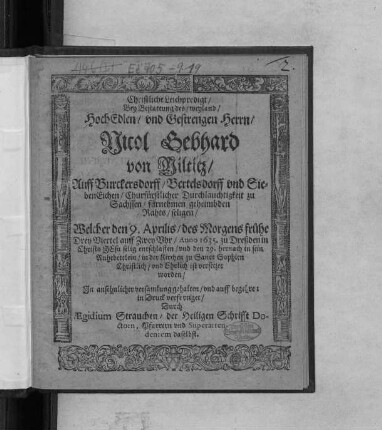 2.
Christliche Leichpredigt/
Bey Bestattung des/ weyland/
HochEdlen/ und Gestrengen Herrn/
Nicol Gebhard
von Miltitz/
Auff Burckersdorff/ Bertelsdorff vnd Sie-
benEichen/ Churfürstlicher Durchlauchtigkeit zu
Sachsen/ fürnehmen geheimbden
Rahts/ seligen/
Welcher den 9. Aprilis/ des Morgens frühe
Drey Viertel auff Zwey Uhr/ Anno 1635. zu Dresden in
Christo JEsu selig entschlaffen/ und den 29. hernach in sein
Ruhebetlein/ in der Kirchen zu Sanct Sophien
Christlich/ und Ehrlich ist versetzet
worden/
In ansehnlicher versamlung gehalten/ und auff begehren
in Druck verfertiget/
Durch
Ægidium Strauchen/ der Heiligen Schrifft Do-
ctorn, Pfarrern und Superinten-
dentem daselbst.